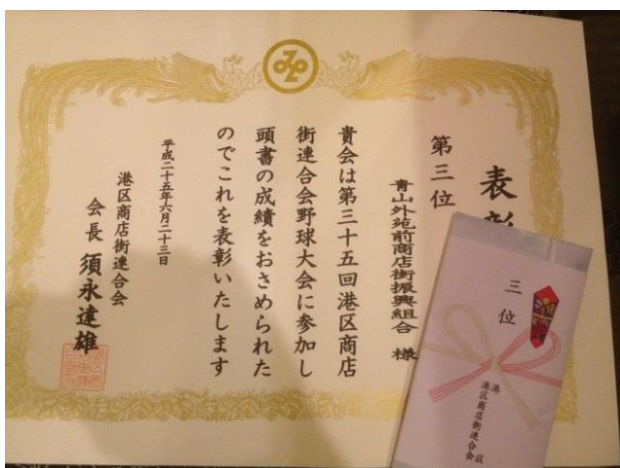 表彰
第三位
青山外苑前商店街振興組合 様
貴会は第三十五回港区商店
街連合会野球大会に参加し
頭書の成績をおさめられた
のでこれを表彰いたします
平成二十五年六月二十三日
港区商店街連合会
会長 須永達雄
三位
港区
港区商店街連合会